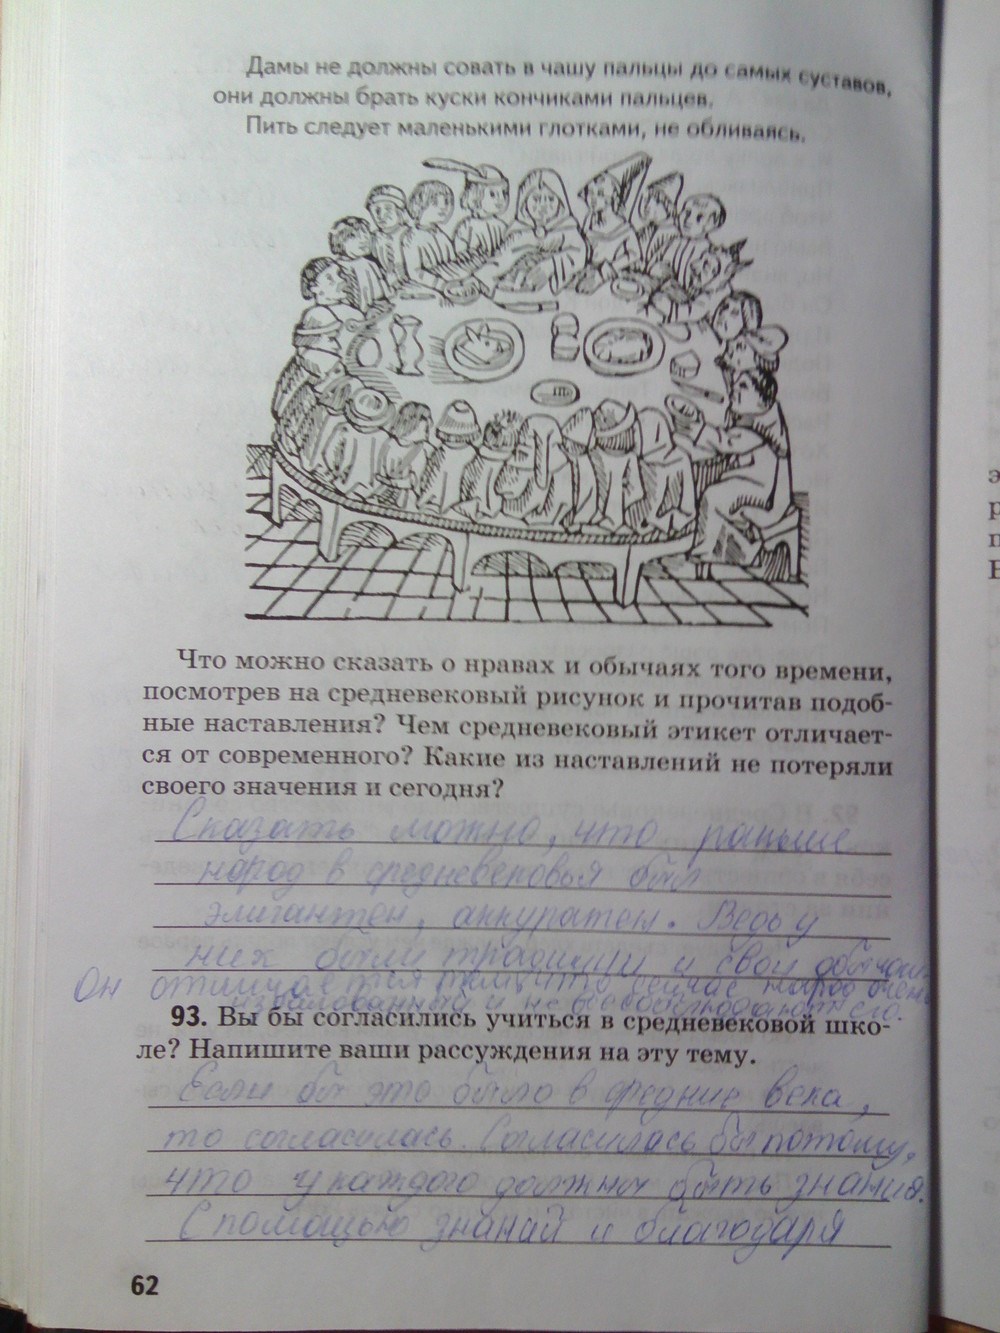 Дамы не должны совать в чашу пальцы до самых суставов,
они должны брать куски кончиками пальцев.
Пить следует маленькими глотками, не обливаясь.
Что можно сказать о нравах и обычаях того времени,
посмотрев на средневековый рисунок и прочитав подоб-
ные наставления? Чем средневековый этикет отличает-
ся от современного? Какие из наставлений не потеряли
своего значения и сегодня?
Сказать можно, что раньше
народ в средневековья был
элигантен, аккуратен. Ведь у
них были традиции и свои обычаи
Он отличается тем, что сейчас народ очень
избалованный и не все соблюдают его.
93. Вы бы согласились учиться в средневековой шко-
ле? Напишите ваши рассуждения на эту тему.
Если бы это было в средние века,
то согласилась. Согласилась бы потому,
что у каждого должны быть знания.
С помощью знаний и благодаря
62
э
р
п
Е